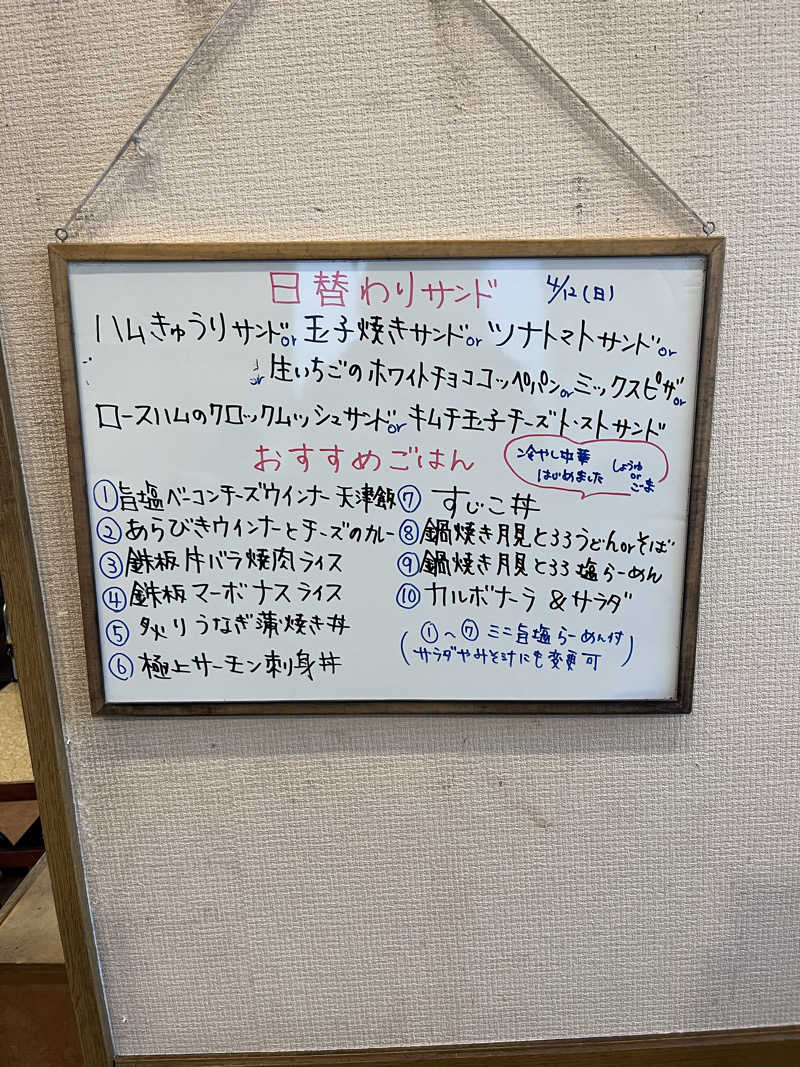 日替わりサンド 4/12(日)
ハムきゅうりサンドor玉子焼きサンドorツナトマトサンドor
or生いちごのホワイトチョココッペパンorミックスピザor
ロースハムのクロックムッシュサンドorキムチ玉子チーズトーストサンド
おすすめごはん
冷やし中華
はじめました
しょうゆ
or
ごま
①旨塩ベーコンチーズウインナー天津飯
②あらびきウインナーとチーズのカレー
③鉄板牛バラ焼肉ライス
④鉄板マーボナスライス
⑤炙りうなぎ蒲焼き丼
⑥極上サーモン刺身丼
⑦すじこ丼
⑧鍋焼き月見とろろうどんorそば
⑨鍋焼き月見とろろ塩らーめん
⑩カルボナーラ&サラダ
(①〜⑦ミニ旨塩らーめん付
サラダやみそ汁にも変更可)